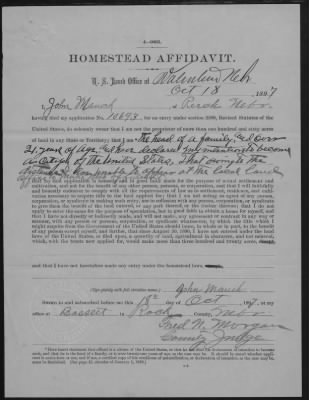 4—063.
HOMESTEAD AFFIDAVIT.
U. S. Land Office at Valentine Nebr
Oct 18, 1897
I, John Mauch, of Perch Nebr.
having filed my application No. 10693, for an entry under section 2289, Revised Statutes of the
United States, do solemnly swear that I am not the proprietor of more than one hundred and sixty acres
of land in any State or Territory; that I am the head of a family, and over
21 years of age, and have declared my intention to become
a citizen of the United States, That owing to
to appear at the Local Land
that my said application is honestly and in good faith made for the purpose of actual settlement and
cultivation, and not for the benefit of any other person, persons, or corporation, and that I will faithfully
and honestly endeavor to comply with all the requirements of law as to settlement, residence, and culti-
vation necessary to acquire title to the land applied for; that I am not acting as agent of any person,
corporation, or syndicate in making such entry, nor in collusion with any person, corporation, or syndicate
to give them the benefit of the land entered, or any part thereof, or the timber thereon; that I do not
apply to enter the same for the purpose of speculation, but in good faith to obtain a home for myself, and
that I have not directly or indirectly made, and will not make, any agreement or contract in any way or
manner, with any person or persons, corporation or syndicate whatsoever, by which the title which I
might acquire from the Government of the United States should inure, in whole or in part, to the benefit
of any person except myself, and further, that since August 30, 1890, I have not entered under the land
laws of the United States, or filed upon, a quantity of land, agricultural in character, and not mineral,
which, with the tracts now applied for, would make more than three hundred and twenty acres, except
and that I have not heretofore made any entry under the homestead laws.
(Sign plainly with full christian name.) John Mauch
Sworn to and subscribed before me this 18th day of Oct, 1897, at my
office at Bassett in Rock County, Nebr
Fred N. Morgan
County Judge